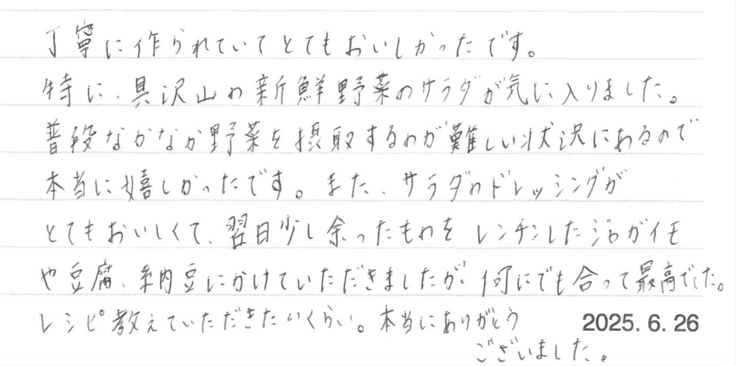 丁寧に作られていてとてもおいしかったです。
特に、具沢山の新鮮野菜のサラダが気に入りました。
普段なかなか野菜を摂取するのが難しい状況にあるので
本当に嬉しかったです。また、サラダのドレッシングが
とてもおいしくて、翌日少し余ったものをレンチンしたジャガイモ
や豆腐、納豆にかけていただきましたが、何にでも合って最高でした。
レシピ教えていただきたいくらい。本当にありがとう
2025. 6. 26
ございました。